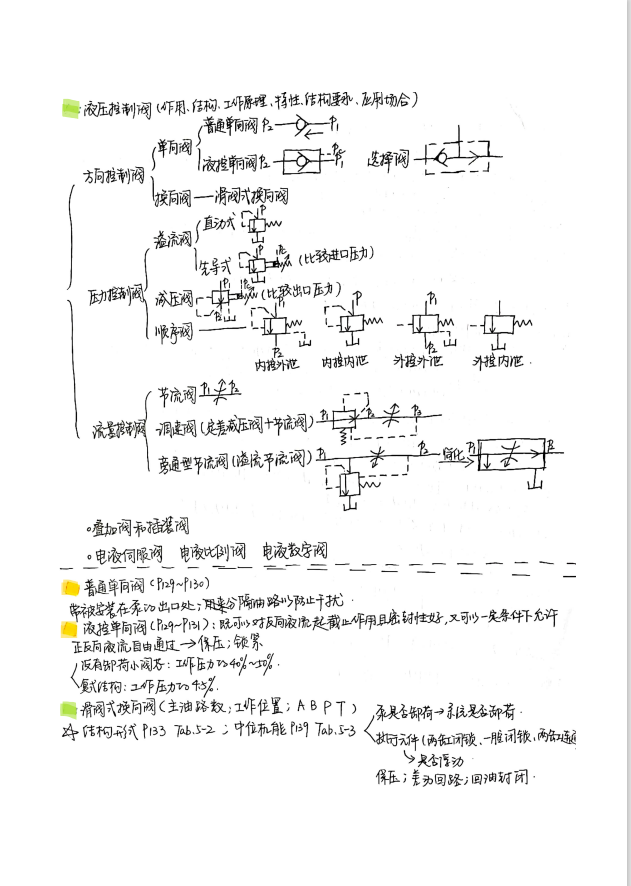 液压控制阀(作用、结构、工作原理、特性、结构要求、应用场合)
方向控制阀
单向阀
普通单向阀 P2 P1
液控单向阀 P2 Pc P1
选择阀
换向阀——滑阀式换向阀
压力控制阀
溢流阀
直动式 P
先导式 P Pc (比较进口压力)
减压阀 P1 Pc P2 (比较出口压力)
顺序阀 P1 P P1
P2 P2
内控外泄 内控内泄 外控外泄 外控内泄.
流量控制阀
节流阀 P1 P2
调速阀(定差减压阀+节流阀) P1 P2 P3
旁通型节流阀(溢流节流阀) P1 P2 简化 P1 P2
。叠加阀和插装阀
。电液伺服阀 电液比例阀 电液数字阀
普通单向阀(P129~P130)
常被安装在泵的出口处;用来分隔油路以防止干扰.
液控单向阀(P129~P131):既可以对反向液流起截止作用且密封性好,又可以一定条件下允许
正反向液流自由通过→保压;锁紧
没有卸荷小阀芯:工作压力的40%~50%.
复式结构:工作压力的4.5%.
滑阀式换向阀(主油路数;工作位置;A B P T)
☆ 结构形式 P133 Tab.5-2 ;中位机能 P139 Tab.5-3
泵是否卸荷→系统是否卸荷.
执行元件(两缸闭锁、一腔闭锁、两缸连通
↘是否浮动
保压;差动回路;回油封闭.